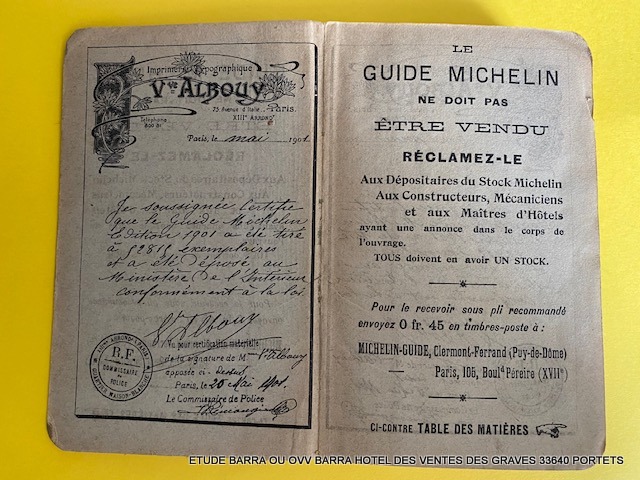 Imprimerie Typographique
Vve ALBOUY
75 Avenue d'Italie, Paris.
XIIIe ARRONDt
Téléphone
Paris, le mai 1901
Je soussignée Certifie
que le Guide Michelin
Edition 1901 a été tiré
à 52815 exemplaires
et a été déposé au
Ministère de l'Intérieur
conformément à la loi
Vve Albouy
Vu pour certification matérielle
de la signature de Mme Vve Albouy
apposée ci-dessus
Paris, le 20 Mai 1901.
Le Commissaire de Police
R.F.
COMMISSAIRE
DE
POLICE
QUARTIER MAISON-BLANCHE
LE
GUIDE MICHELIN
NE DOIT PAS
ÊTRE VENDU
RÉCLAMEZ-LE
Aux Dépositaires du Stock Michelin
Aux Constructeurs, Mécaniciens
et aux Maîtres d'Hôtels
ayant une annonce dans le corps de
l'ouvrage.
TOUS doivent en avoir UN STOCK.
Pour le recevoir sous pli recommandé
envoyez 0 fr. 45 en timbres-poste à :
MICHELIN-GUIDE, Clermont-Ferrand (Puy-de-Dôme)
— Paris, 105, Bould Péreire (XVIIe)
CI-CONTRE TABLE DES MATIÈRES
ETUDE BARRA OU OVV BARRA HOTEL DES VENTES DES GRAVES 33640 PORTETS